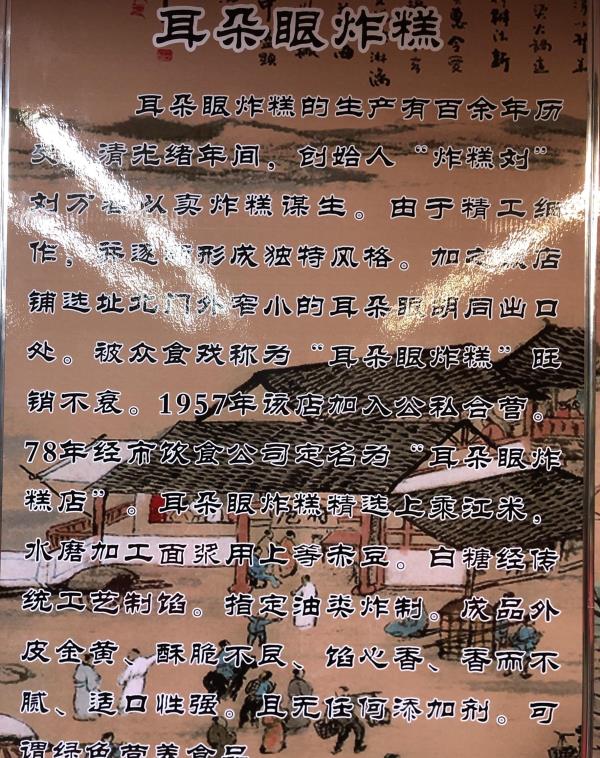 耳朵眼炸糕
耳朵眼炸糕的生产有百余年历
清光绪年间，创始人“炸糕刘”
刘万 以卖炸糕谋生。由于精工细
作， 逐 形成独特风格。加之 店
铺选址北门外窄小的耳朵眼胡同出口
处。被众食戏称为“耳朵眼炸糕”旺
销不衰。1957年该店加入公私合营。
78年经市饮食公司定名为“耳朵眼炸
糕店”。耳朵眼炸糕精选上乘江米，
水磨加工面浆用上等赤豆。白糖经传
统工艺制馅。指定油类炸制。成品外
皮金黄、酥脆不艮、馅心香、香而不
腻、适口性强。且无任何添加剂。可
谓绿色营养食品